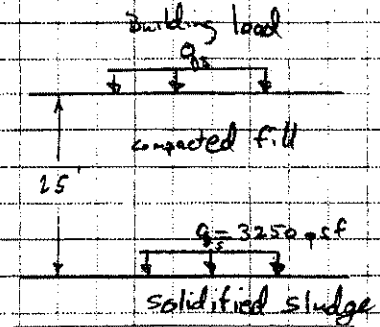 Building load
qs
compacted fill
25'
qs = 3250 psf
solidified sludge